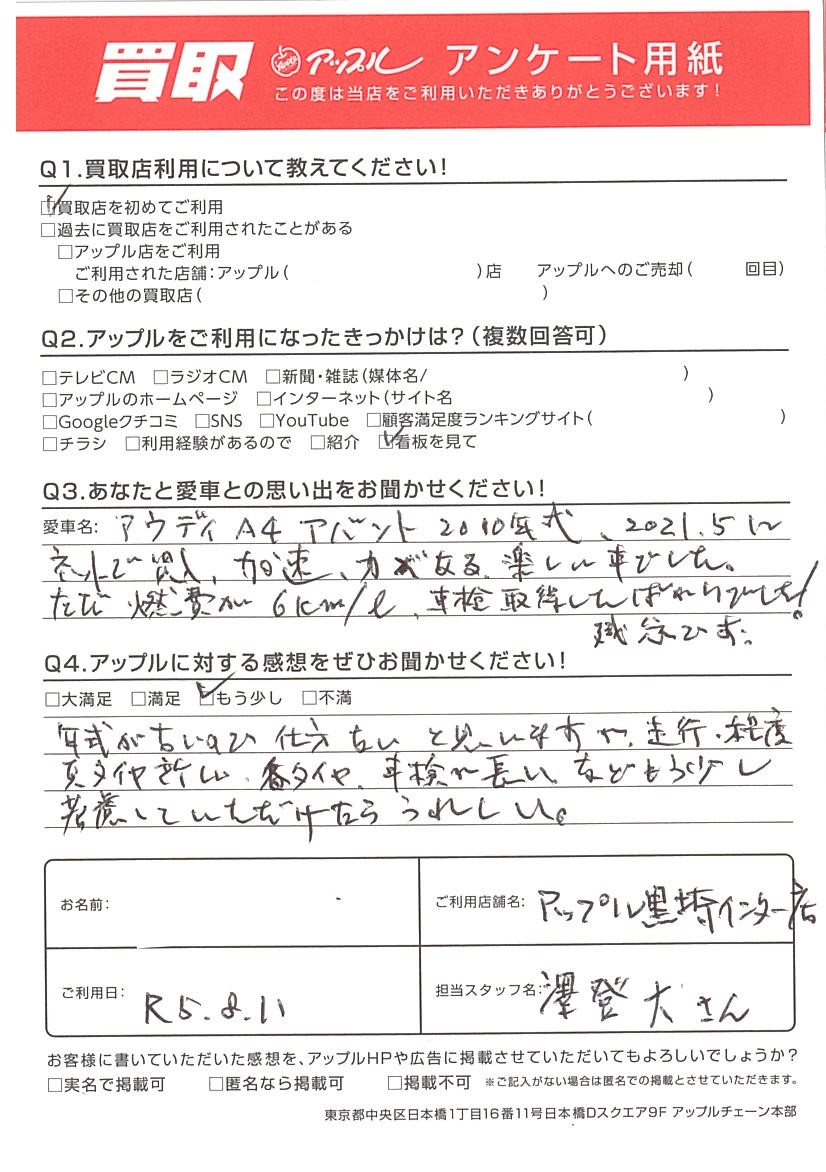 買取 アップル アンケート用紙
この度は当店をご利用いただきありがとうございます!
Q1.買取店利用について教えてください!
☑買取店を初めてご利用
□過去に買取店をご利用されたことがある
□アップル店をご利用
ご利用された店舗:アップル( )店 アップルへのご売却( 回目)
□その他の買取店( )
Q2.アップルをご利用になったきっかけは?(複数回答可)
□テレビCM □ラジオCM □新聞・雑誌(媒体名/ )
□アップルのホームページ □インターネット(サイト名 )
□Googleクチコミ □SNS □YouTube □顧客満足度ランキングサイト( )
□チラシ □利用経験があるので □紹介 ☑看板を見て
Q3.あなたと愛車との思い出をお聞かせください!
愛車名: アウディ A4 アバント 2010年式、2021.5に
ネットで購入、加速、力がある、楽しい車でした。
ただ燃費が6km/l、車検取得したばかりでした!
残念です。
Q4.アップルに対する感想をぜひお聞かせください!
□大満足 □満足 ☑もう少し □不満
年式が古いので仕方ないと思いますが、走行・程度
夏タイヤ新しい、冬タイヤ、車検が長い、などもう少し
考慮していただけたらうれしい。
お名前:
ご利用店舗名: アップル黒埼インター店
ご利用日: R5.8.11
担当スタッフ名: 澤登 大 さん
お客様に書いていただいた感想を、アップルHPや広告に掲載させていただいてもよろしいでしょうか?
□実名で掲載可 □匿名なら掲載可 □掲載不可 ※ご記入がない場合は匿名での掲載とさせていただきます。
東京都中央区日本橋1丁目16番11号日本橋Dスクエア9F アップルチェーン本部